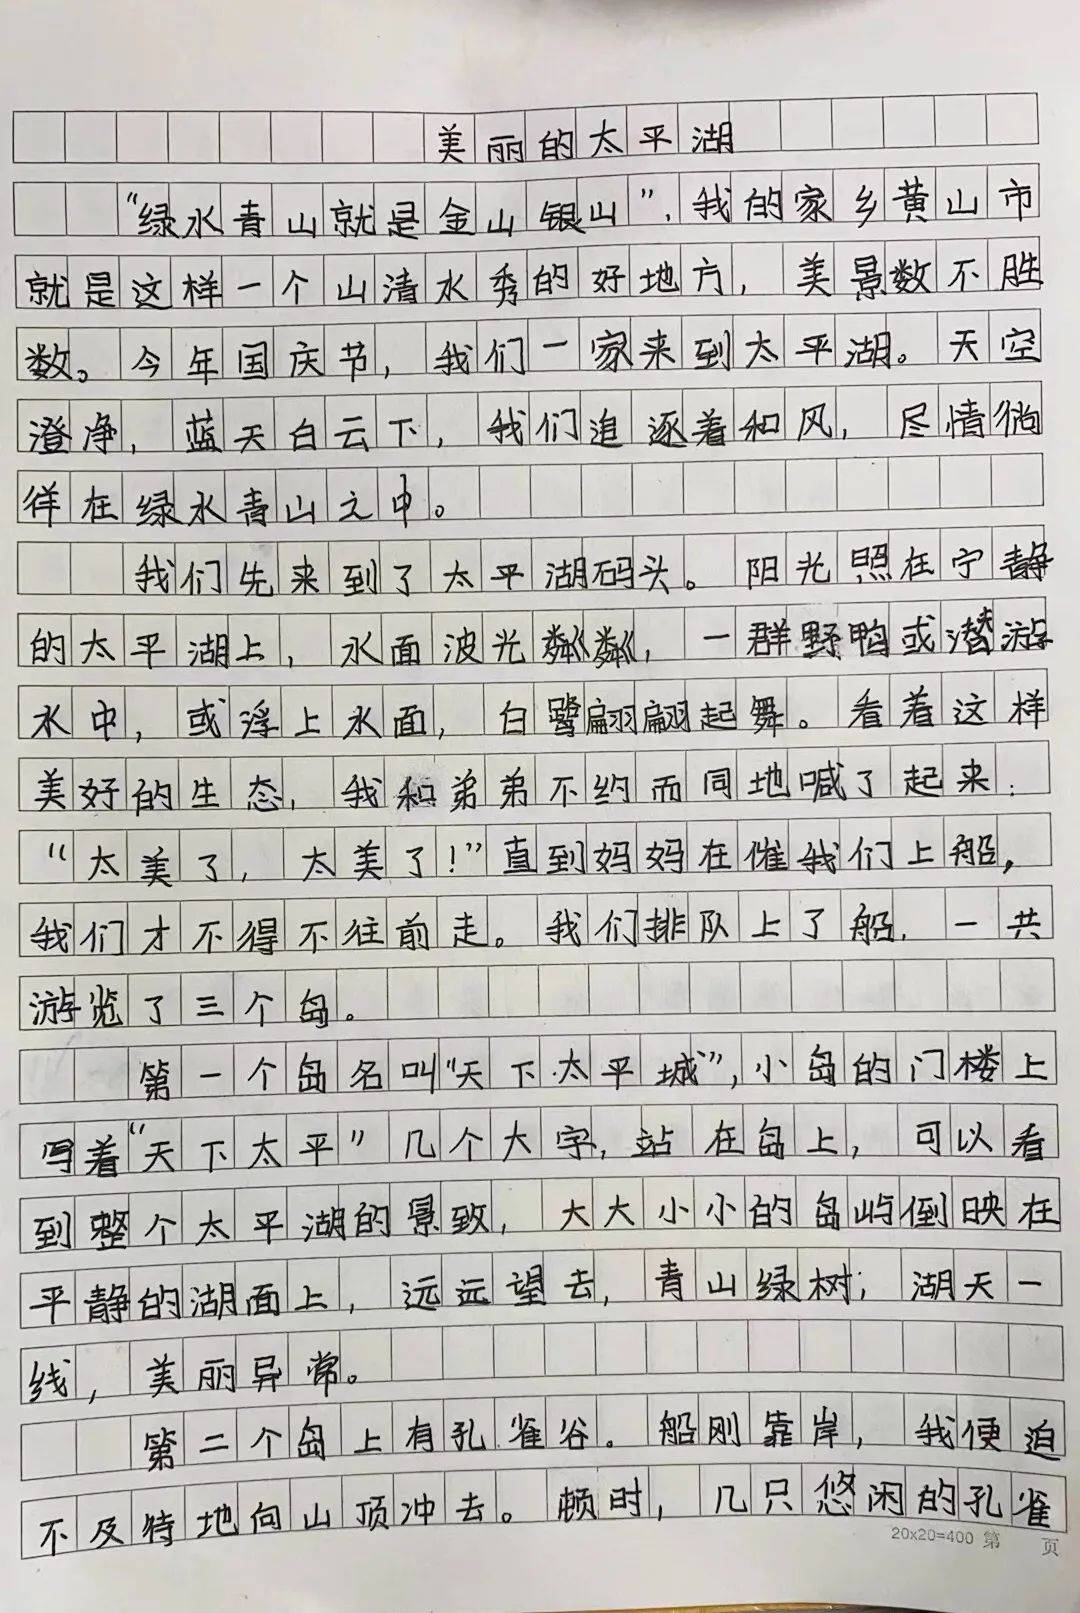 美丽的太平湖
“绿水青山就是金山银山”,我的家乡黄山市
就是这样一个山清水秀的好地方,美景数不胜
数。今年国庆节,我们一家来到太平湖。天空
澄净,蓝天白云下,我们追逐着和风,尽情徜
徉在绿水青山之中。
我们先来到了太平湖码头。阳光照在宁静
的太平湖上,水面波光粼粼,一群野鸭或潜游
水中,或浮上水面,白鹭翩翩起舞。看着这样
美好的生态,我和弟弟不约而同地喊了起来:
“太美了,太美了!”直到妈妈在催我们上船,
我们才不得不往前走。我们排队上了船,一共
游览了三个岛。
第一个岛名叫“天下太平城”,小岛的门楼上
写着“天下太平”几个大字,站在岛上,可以看
到整个太平湖的景致,大大小小的岛屿倒映在
平静的湖面上,远远望去,青山绿树;湖天一
线,美丽异常。
第二个岛上有孔雀谷。船刚靠岸,我便迫
不及待地向山顶冲去。顿时,几只悠闲的孔雀
20x20=400 第 页